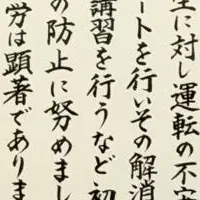 生に対し運転の不安
ートを行いその解消
講習を行うなど初
の防止に努めまし
労は顕著でありま